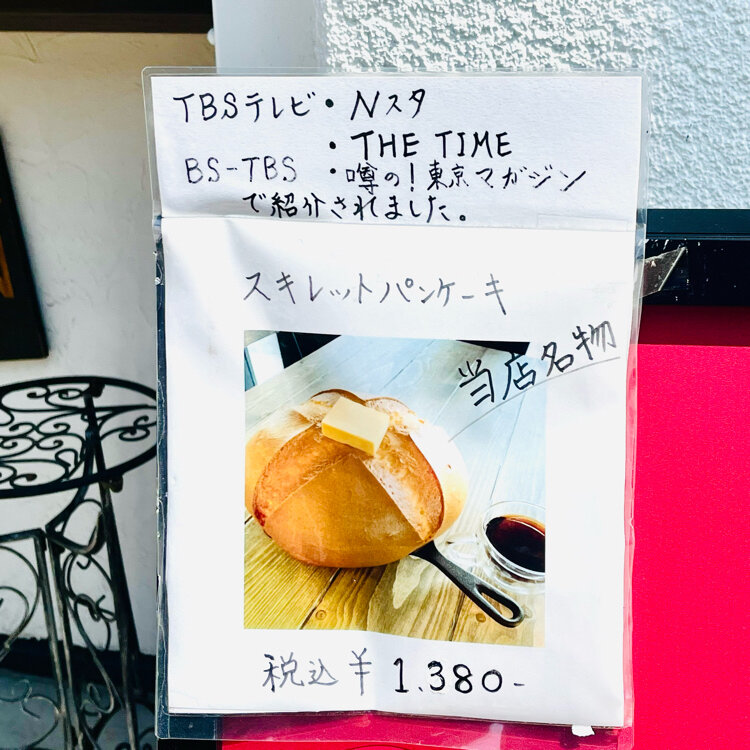 TBSテレビ・Nスタ
・THE TIME
BS-TBS ・噂の!東京マガジン
で紹介されました。
スキレットパンケーキ
当店名物
税込¥1.380-